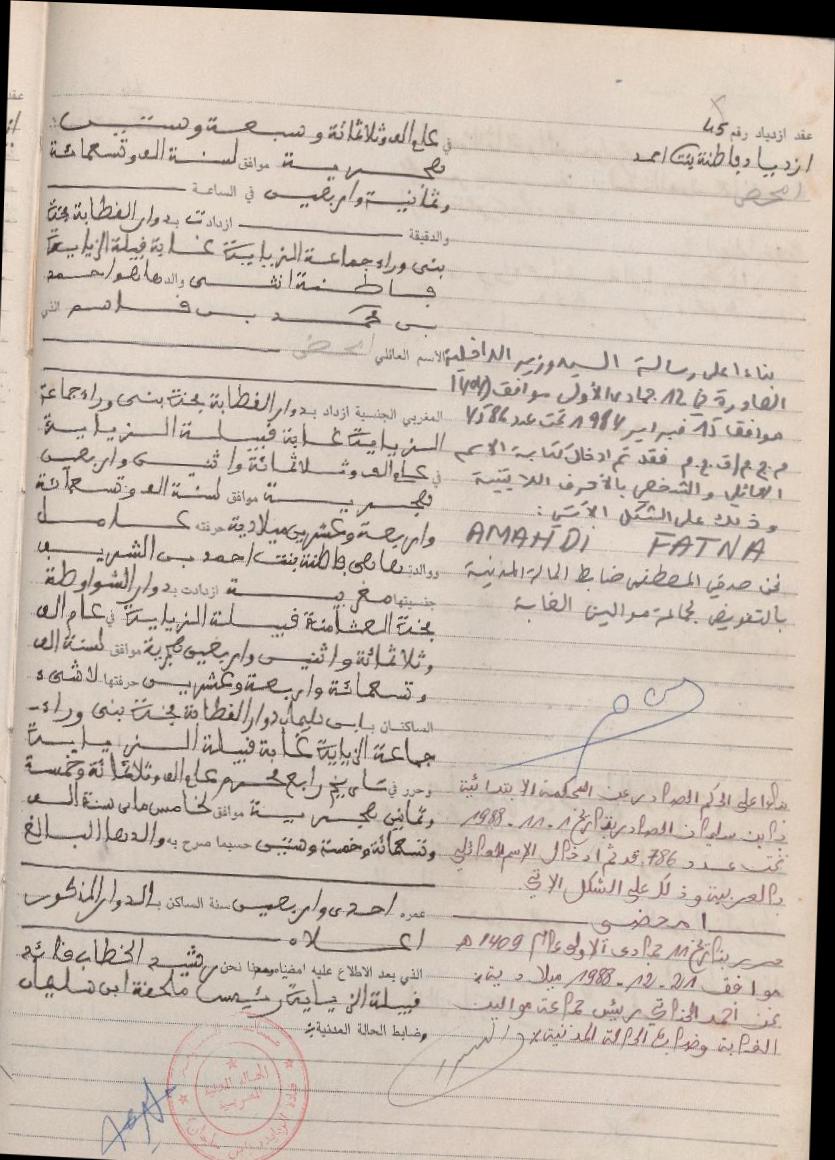 عقد ازدياد رقم 45
ازدياد فاطنة بنت احمد
امحضى
في عام الف وثلاثمائة وسبعة وستين
هجرية موافق لسنة الف وتسعمائة
وثمانية واربعين في الساعة
والدقيقة ازدادت بدوار الفطابة
بنى وراء جماعة الزيايدة غابة قبيلة الزيايدة
فاطنة انثى والدها هو احمد
بن محمد بن قاسم الذي
الاسم العائلي امحضى
المغربي الجنسية ازداد بدوار الفطابة فخدة بنى وراء جماعة
الزيايدة غابة قبيلة الزيايدة
في عام الف وثلاثمائة واثنين واربعين
هجرية موافق لسنة الف وتسعمائة
واربعة وعشرين ميلادية حرفته عامل
ووالدتها هي فاطنة بنت احمد بن الشريف
جنسيتها مغربية ازدادت بدوار الشواوطة
فخدة العثامنة قبيلة الزيايدة في عام الف
وثلاثمائة واثنين واربعين هجرية موافق لسنة الف
وتسعمائة واربعة وعشرين حرفتها لا شيء
الساكنان بابن سليمان دوار الفطابة فخدة بنى وراء
جماعة الزيايدة غابة قبيلة الزيايدة
وحرر في رابع محرم عام الف وثلاثمائة وخمسة
وثمانين هجرية موافق لخامس ماى سنة الف
وتسعمائة وخمسة وستين حسبما صرح به والدها البالغ
عمره احدى واربعين سنة الساكن بالدوار المذكور
اعلاه
الذي بعد الاطلاع عليه امضى معنا نحن رشيد الخطاب قائد
قبيلة الزيايدة رئيس ملحقة ابن سليمان
وضابط الحالة المدنية
بناءا على رسالة السيد وزير الداخلية
الصادرة في 12 جمادى الأولى موافق
موافق 13 فبراير 1984 تحت عدد
م.ح.م/ق.ح.م فقد تم ادخال كتابة الاسم
العائلي والشخصي بالأحرف اللاتينية
وذلك على الشكل الآتي :
AMAHDI FATNA
نحن صدقي المصطفى ضابط الحالة المدنية
بالتفويض لجماعة موالين الغابة
بناءا على الحكم الصادر عن المحكمة الابتدائية
بابن سليمان الصادر بتاريخ 1-11-1988
تحت عدد 786 قد تم ادخال الإسم العائلي
بالعربية وذلك على الشكل الاتي
امحضى
حرر بتاريخ 11 جمادى الاولى عام 1409 ه
موافق 21-12-1988 ميلادية
نحن احمد رئيس جماعة موالين
الغابة وضابط الحالة المدنية